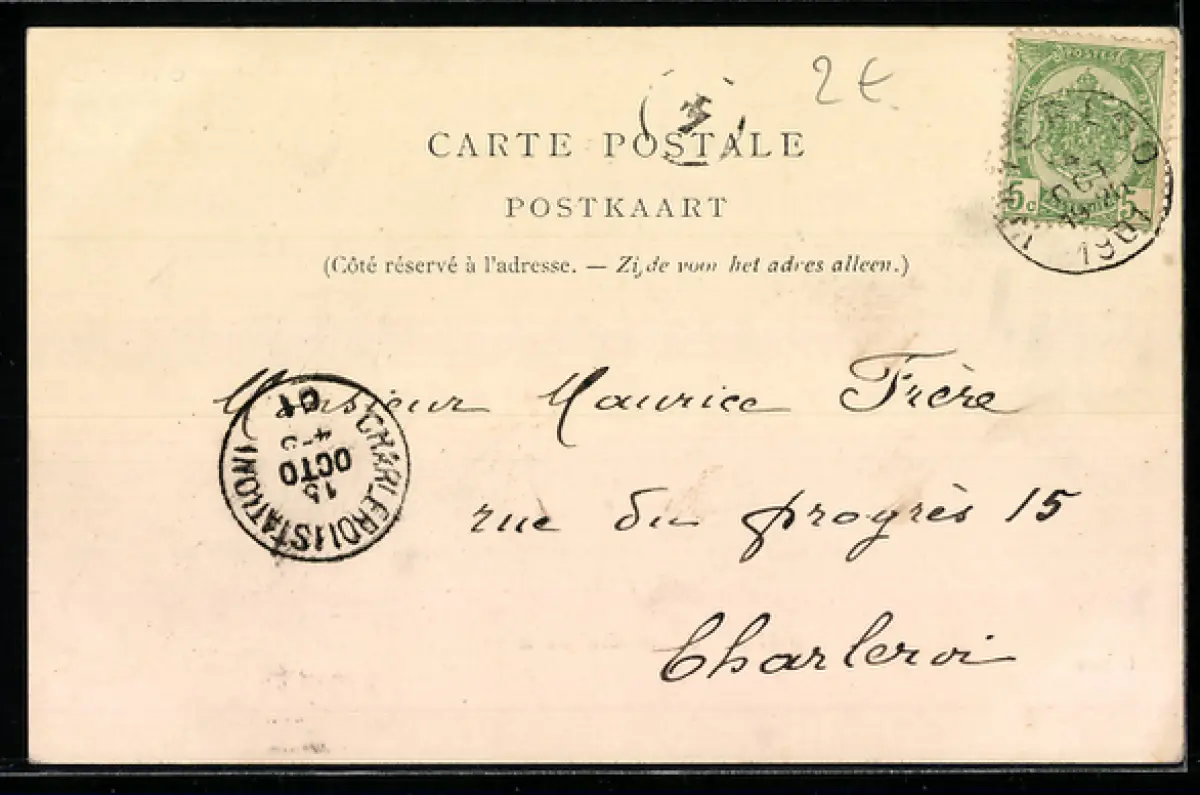 2€
POSTES
5c
5
OCT
1901
4
CARTE POSTALE
POSTKAART
(Côté réservé à l'adresse. — Zijde voor het adres alleen.)
Monsieur Maurice Frère
CHARLEROI (STATION)
15
OCTO
01
rue du progrès 15
Charleroi